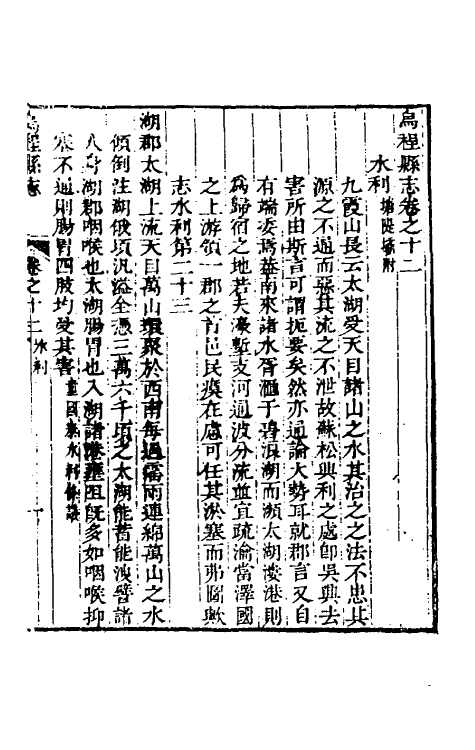 烏程縣志卷之十二
水利 塘隄墻附
九霞山長云太湖受天目諸山之水其治之之法不患其
源之不通而惡其流之不泄故蘇松興利之處卽吳興去
害所由斯言可謂扼要矣然亦通論大勢耳就郡言又自
有端委焉葢南來諸水胥滙于碧浪湖而瀕太湖漊港則
爲歸宿之地若夫濠塹支河通波分流並宜疏瀹當澤國
之上游領一郡之首邑民瘼在處可任其淤塞而弗圖歟
志水利第二十三
湖郡太湖上流天目萬山環聚於西南每遇霪雨連綿萬山之水
傾倒注湖俄頃汎溢全憑三萬六千頃之太湖能蓄能洩譬諸
人身湖郡咽喉也太湖腸胃也入湖諸港壅阻旣多如咽喉抑
塞不通則腸胃四肢均受其害
烏程縣志 卷之十二 水利 一